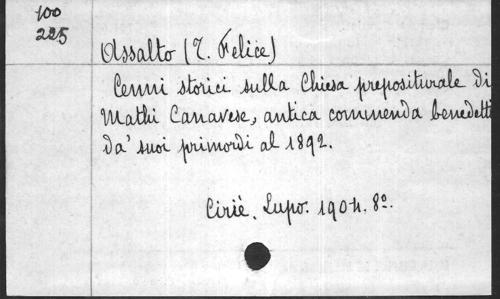 100
225
Assalto (T. Felice)
Cenni storici sulla Chiesa prepositurale di
Mathi Canavese, antica commenda benedetti
da' suoi primordi al 1892.
Ciriè. Lupo. 1904. 8º.